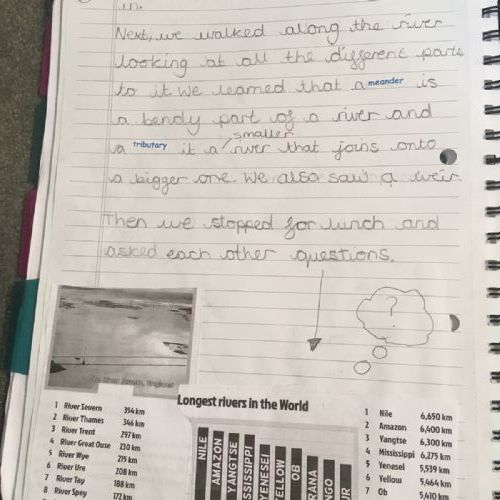 in.
Next, we walked along the river
looking at all the different parts
to it We learned that a meander is
a bendy part of a river and
smaller
a tributary it a / river that joins onto
a bigger one. We also saw a weir
Then we stopped for lunch and
asked each other questions.
?
Longest rivers in the World
1 River Severn 354 km
2 River Thames 346 km
3 River Trent 297 km
4 River Great Ouse 230 km
5 River Wye 215 km
6 River Ure 208 km
7 River Tay 188 km
8 River Spey 172 km
NILE
AMAZON
YANGTSE
MISSISSIPPI
YENESEI
YELLOW
OB
1 Nile 6,650 km
2 Amazon 6,400 km
3 Yangtse 6,300 km
4 Mississippi 6,275 km
5 Yenesei 5,539 km
6 Yellow 5,464 km
7 Ob 5,410 km